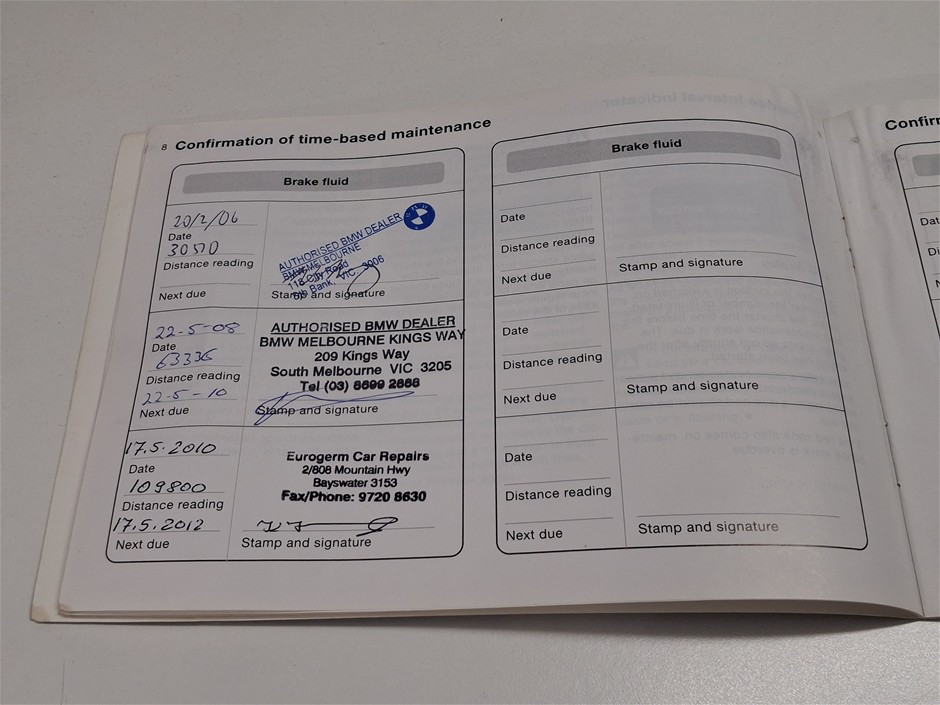 8 Confirmation of time-based maintenance
Brake fluid
20/2/06
Date
30570
Distance reading
Next due
AUTHORISED BMW DEALER
BMW MELBOURNE
118 City Road
Sth Bank, VIC. 3006
Stamp and signature
22-5-08
Date
63336
Distance reading
22-5-10
Next due
AUTHORISED BMW DEALER
BMW MELBOURNE KINGS WAY
209 Kings Way
South Melbourne VIC 3205
Tel (03) 8699 2888
Stamp and signature
17.5.2010
Date
109800
Distance reading
17.5.2012
Next due
Eurogerm Car Repairs
2/808 Mountain Hwy
Bayswater 3153
Fax/Phone: 9720 8630
Stamp and signature
Brake fluid
Date
Distance reading
Next due
Stamp and signature
Date
Distance reading
Next due
Stamp and signature
Date
Distance reading
Next due
Stamp and signature
Confirm